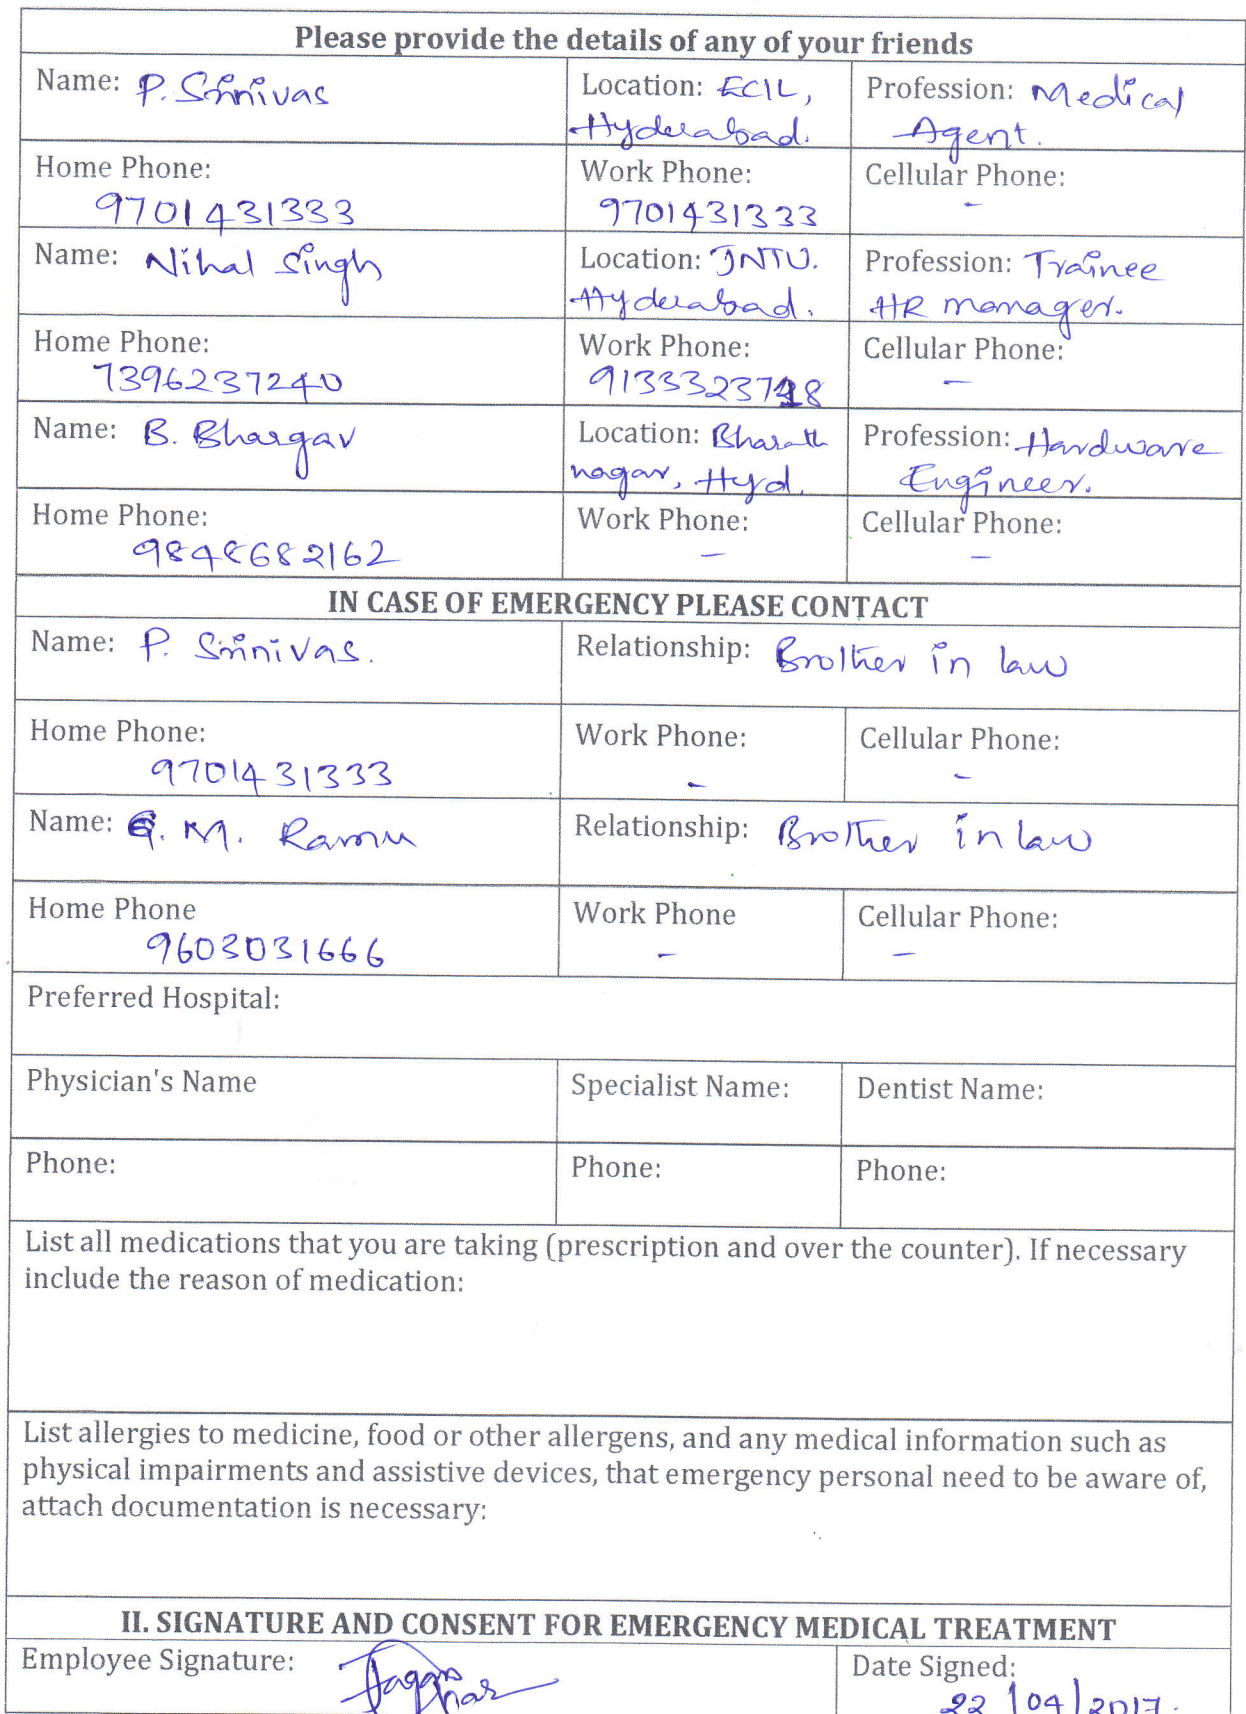 Please provide the details of any of your friends
Name: P. Srinivas
Location: ECIL, Hyderabad.
Profession: Medical Agent.
Home Phone: 9701431333
Work Phone: 9701431333
Cellular Phone: -
Name: Nihal Singh
Location: JNTU. Hyderabad.
Profession: Trainee HR manager.
Home Phone: 7396237240
Work Phone:
Cellular Phone: -
Name: B. Bhargav
Location: Bharath nagar, Hyd.
Profession: Hardware Engineer.
Home Phone: 9848682162
Work Phone: -
Cellular Phone: -
IN CASE OF EMERGENCY PLEASE CONTACT
Name: P. Srinivas.
Relationship: Brother in law
Home Phone: 9701431333
Work Phone: -
Cellular Phone: -
Name: G. M. Ramu
Relationship: Brother in law
Home Phone 9603031666
Work Phone -
Cellular Phone: -
Preferred Hospital:
Physician's Name
Specialist Name:
Dentist Name:
Phone:
Phone:
Phone:
List all medications that you are taking (prescription and over the counter). If necessary
include the reason of medication:
List allergies to medicine, food or other allergens, and any medical information such as
physical impairments and assistive devices, that emergency personal need to be aware of,
attach documentation is necessary:
II. SIGNATURE AND CONSENT FOR EMERGENCY MEDICAL TREATMENT
Employee Signature:
Date Signed: 22/04/2017.